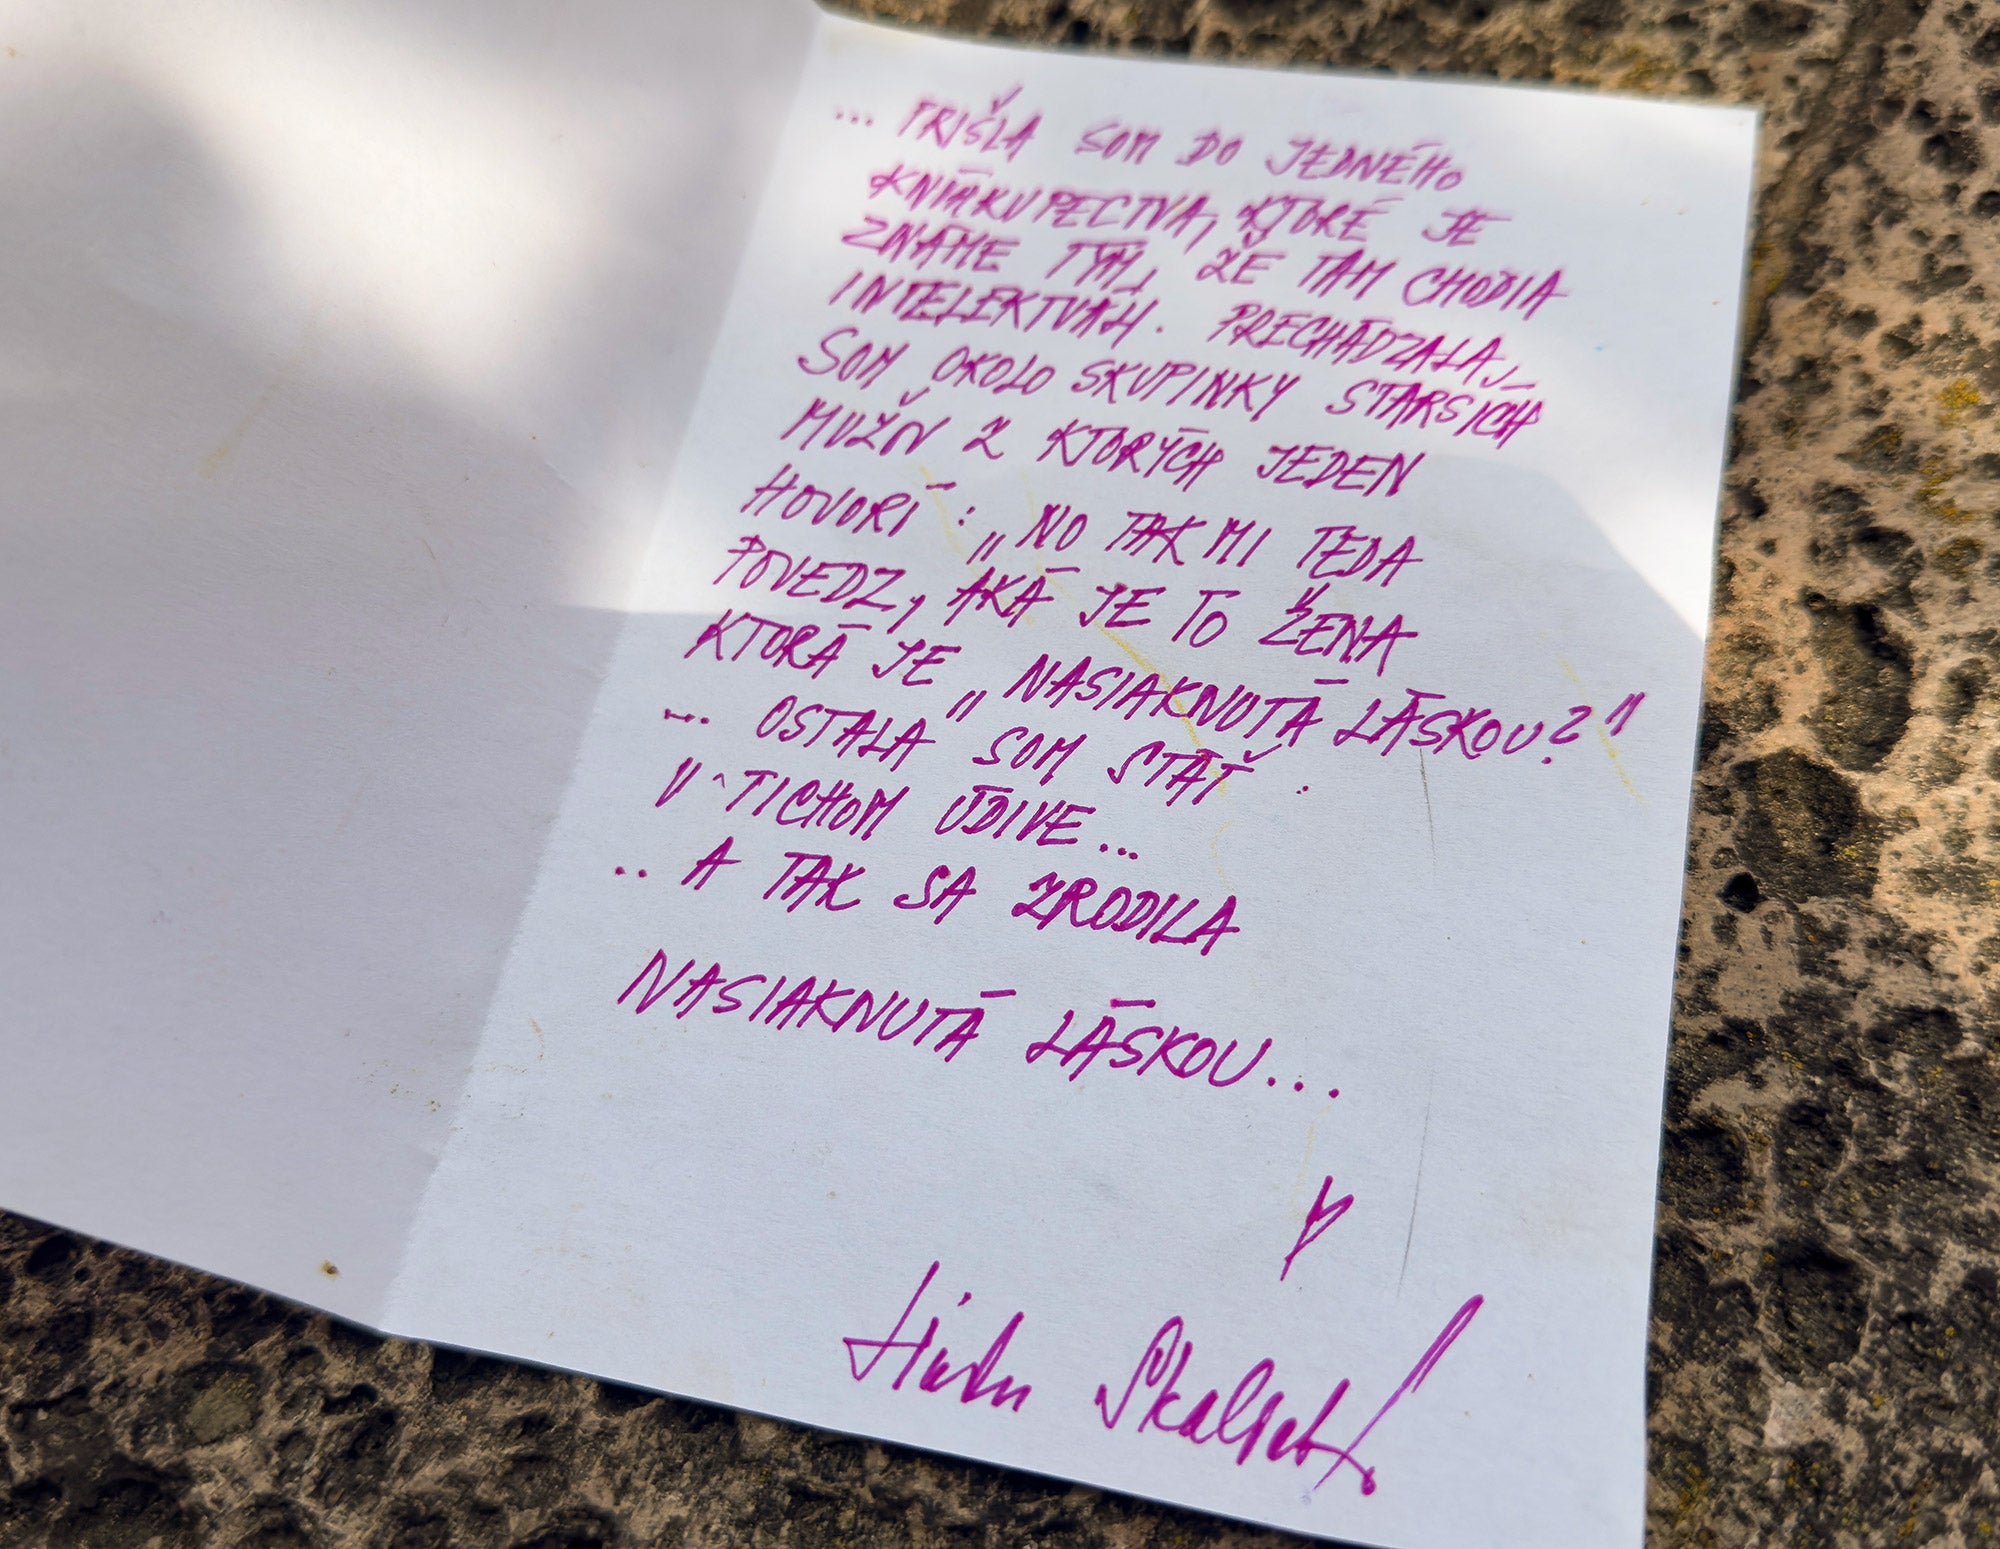 ... PRIŠLA SOM DO JEDNÉHO
KNÍHKUPECTVA, KTORÉ JE
ZNÁME TÝM, ŽE TAM CHODIA
INTELEKTUÁLI. PRECHÁDZALA
SOM OKOLO SKUPINKY STARSÍCH
MUŽOV Z KTORÝCH JEDEN
HOVORÍ: „NO TAK MI TEDA
POVEDZ, AKÁ JE TO ŽENA
KTORÁ JE „NASIAKNUTÁ LÁSKOU?"
... OSTALA SOM STÁŤ
V TICHOM ÚDIVE...
.. A TAK SA ZRODILA
NASIAKNUTÁ LÁSKOU...